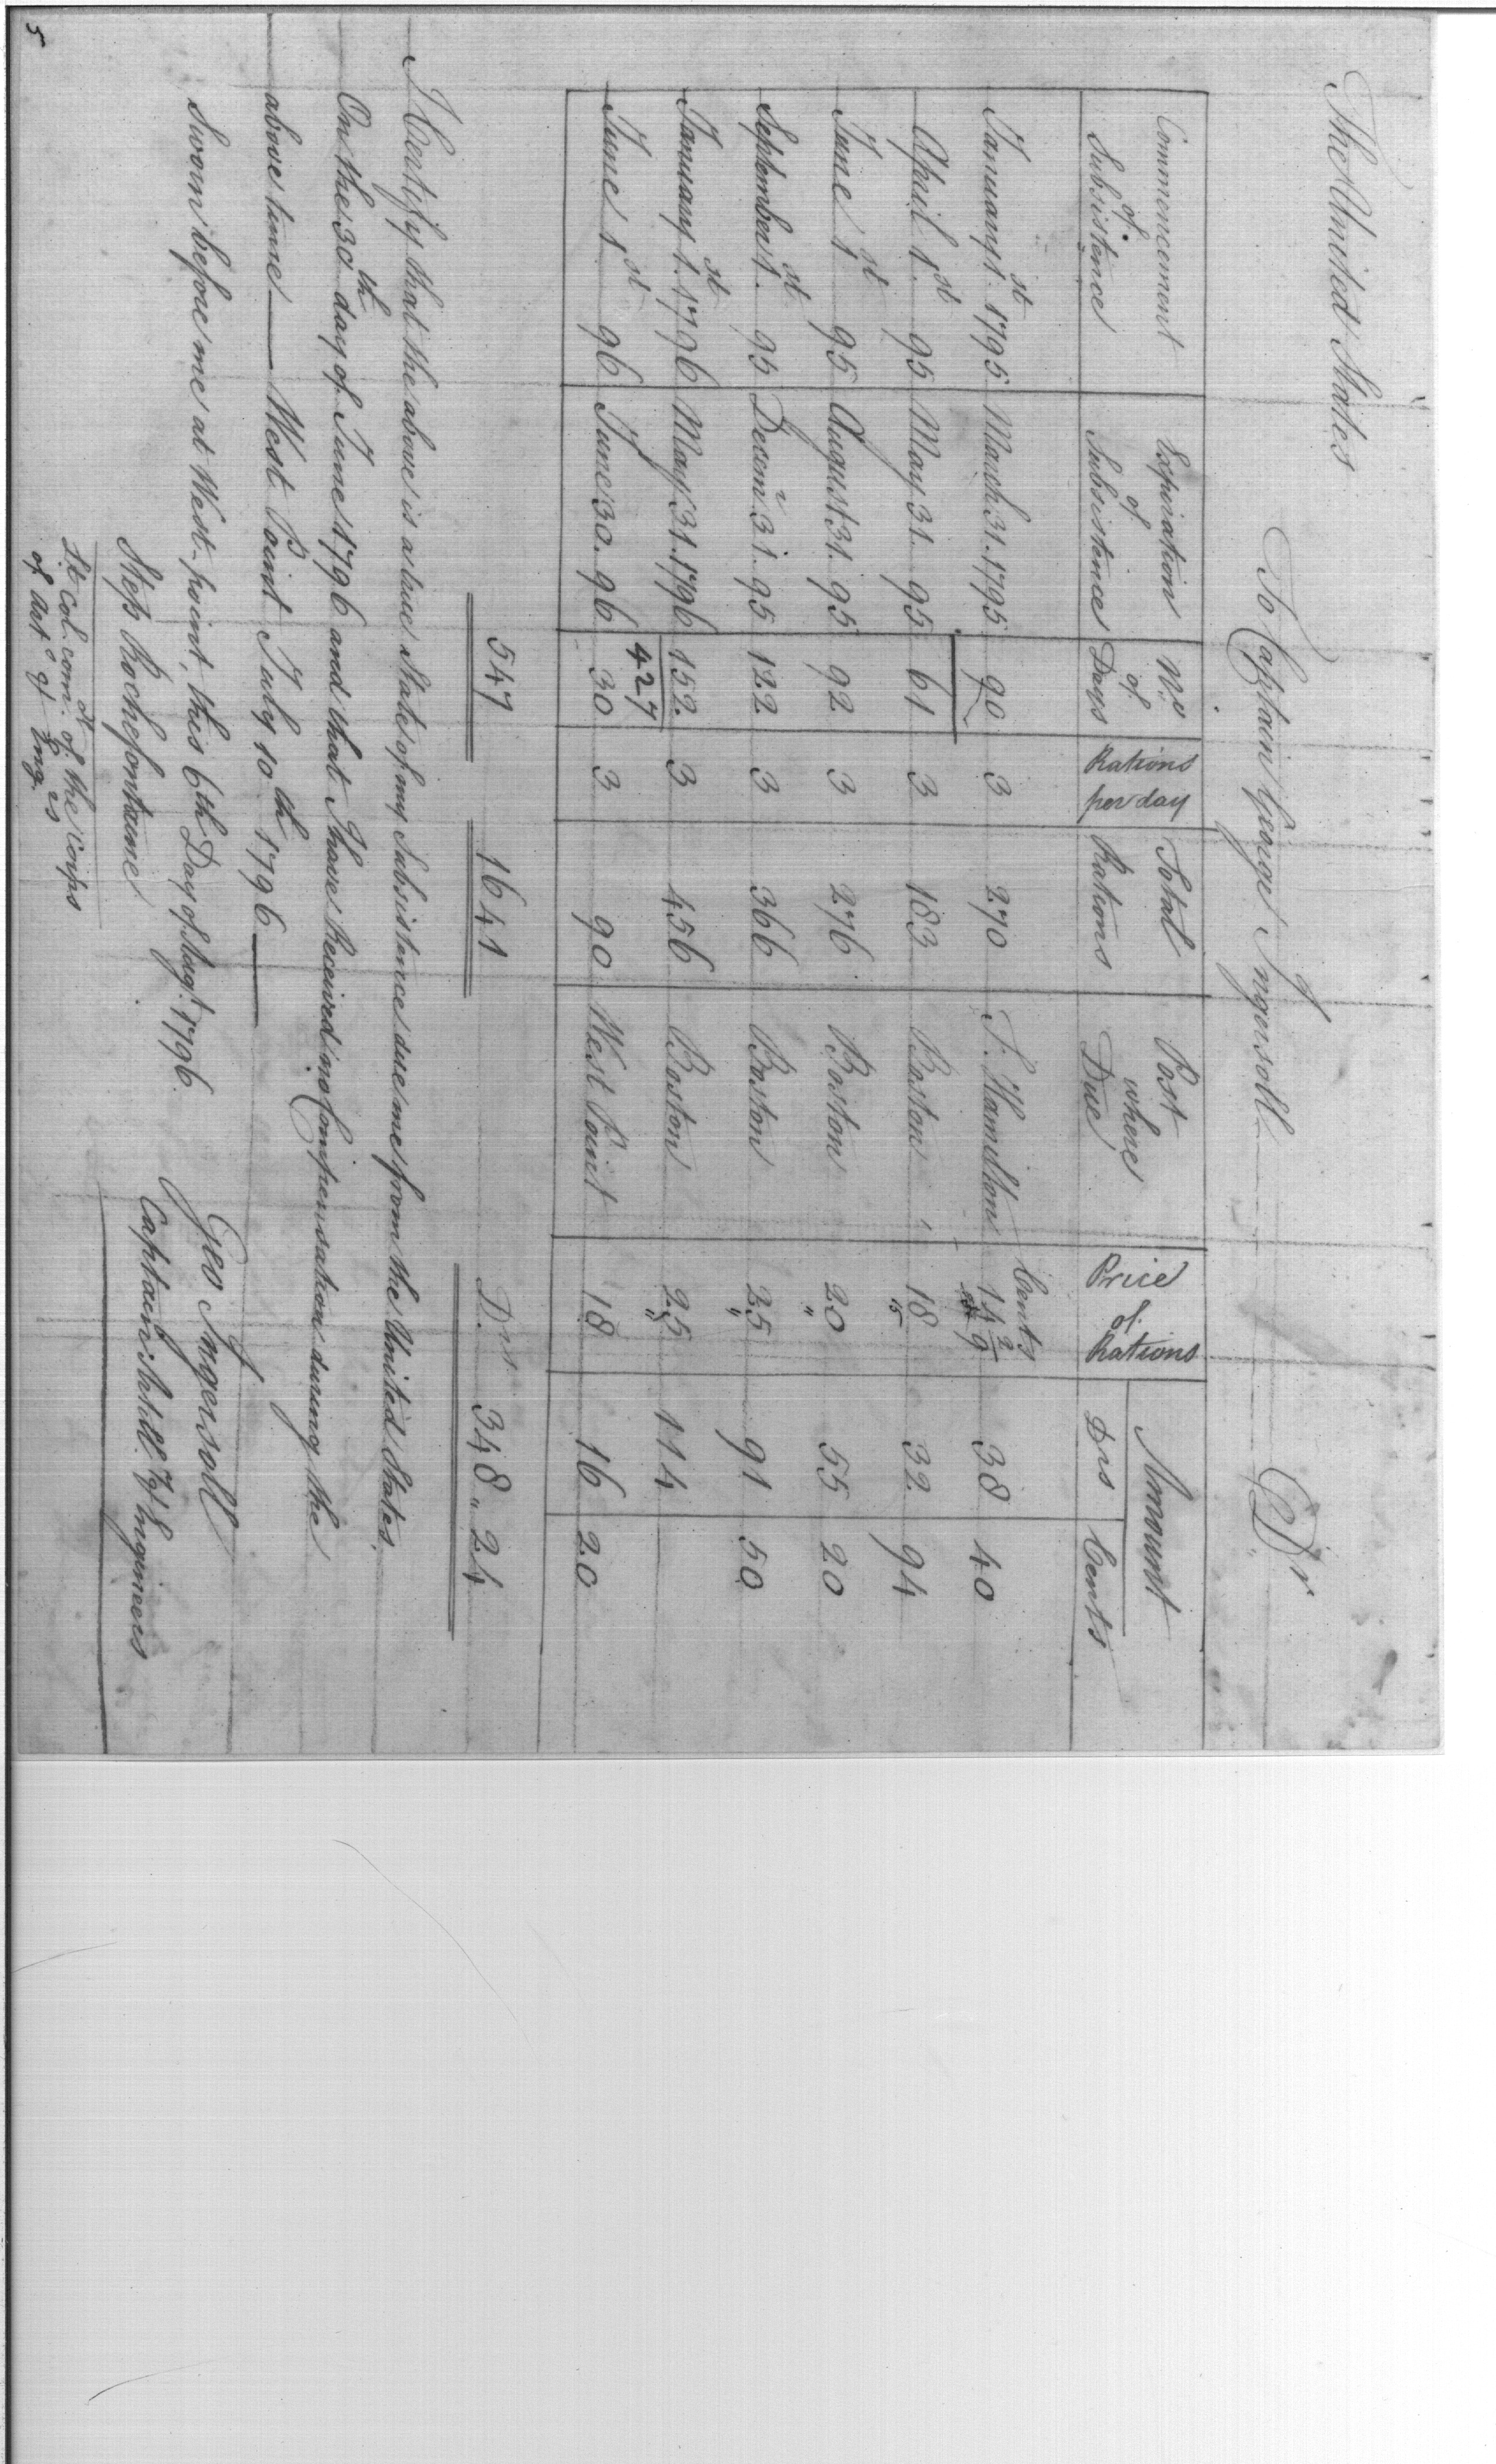 The United States
To Captain George Ingersoll Dr
Commencement of Subsistence | Expiration of Subsistence | No of Days | Rations per day | Total Rations | Post where Due | Price of Rations | Amount Drs Cents
January 1st. 1795 | March 31. 1795 | 90 | 3 | 270 | F. Hamilton | Cents 14 2/9 | 38 | 40
April 1st. 95 | May 31. 95 | 61 | 3 | 183 | Boston | 18 | 32 | 94
June 1st 95 | August 31. 95 | 92 | 3 | 276 | Boston | 20 " | 55 | 20
September 1st. 95 | Decemr 31. 95 | 122 | 3 | 366 | Boston | 25 " | 91 | 50
January 1st. 1796 | May 31. 1796 | 152 | 3 | 456 | Boston | 25 " | 114
427
June 1st 96 | June 30. 96 | 30 | 3 | 90 | West Point | 18 | 16 | 20
547 1641 Drs 348 " 24
I Certify that the above is a true State of my Subsistence due me from the United States
On the 30th day of June 1796 and that I have Received no Compensation during the
above time — West Point July 10th 1796 —
Sworn before me at West-point, this 6th Day of Augt. 1796.
Geo Ingersoll
Captain Artill. & Engineers
Steph Rochefontaine
Lt Col. comdt. of the Corps
of Art. & Engrs
5